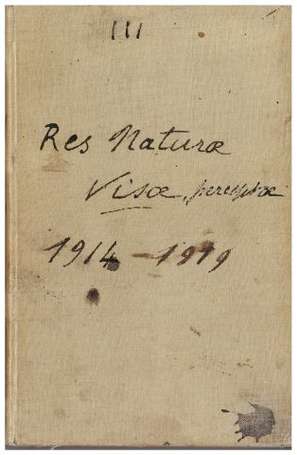 III
Res Naturæ
Visæ, perceptæ
1914 - 1919